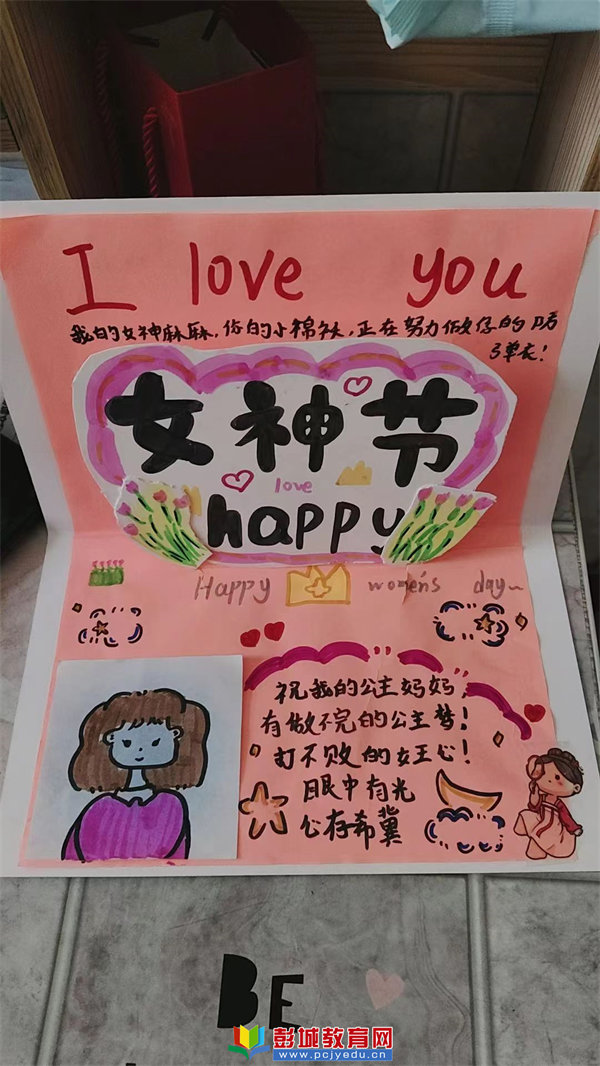 I love you
我的女神麻麻，你的小棉袄，正在努力做您的防
弹衣！
女神节
love
happy
Happy women's day~
祝我的公主妈妈，
有做不完的公主梦！
打不败的女王心！
眼中有光
心存希冀
BE
彭城教育网
www.pcjyedu.cn